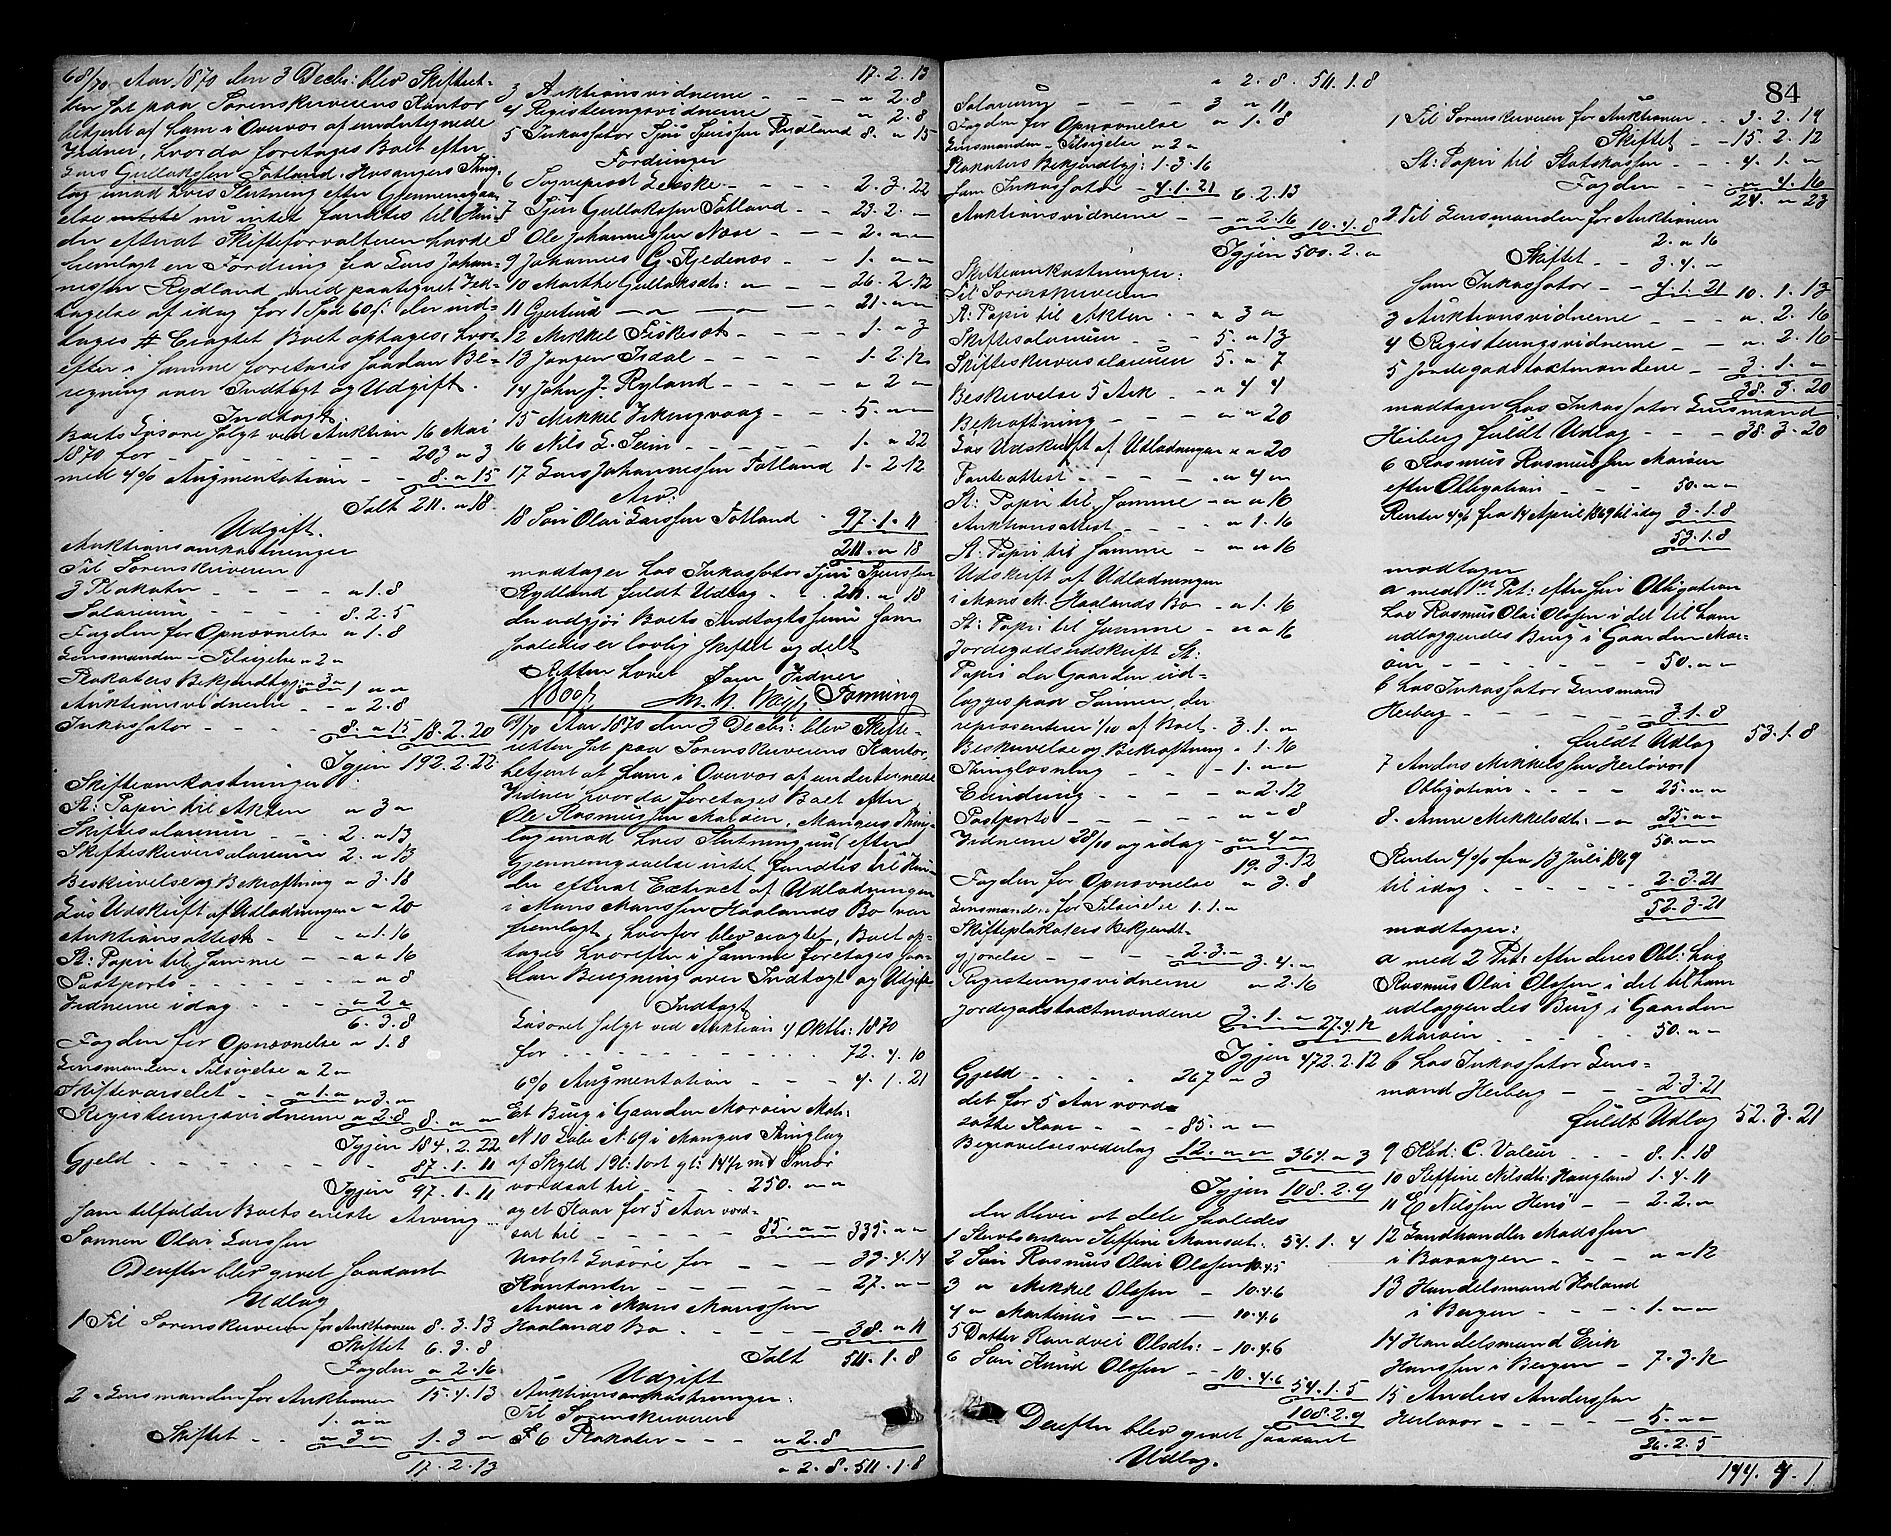 68/70 Aar 1870 den 3 Decbr: blev Skifteret-
ten sat paa Sorenskriverens Kontor
betjent af ham i Overvær af undertegnede
Vidner, hvorda foretages Boet efter
Lars Gullaksen Totland, Hosangers Thing-
lag imod hvis Slutning efter Gjennemgaa-
else nu intet fandtes til Hin-
der efterat Skifteforvalteren havde
fremlagt en Fordring fra Lars Johan-
nessen Rydland med paategnet Ved-
tagelse af idag for 1 Spd 60 s: der ind-
tages # Eragtet Boet optages, hvor-
efter i samme foretages saadan Be-
regning over Indtægt og Udgift.
Indtægt
Boets Løsøre solgt ved Auktion 16 Mai
1870 for - - - 203 " 3
med 4 % Augmentation - - 8. " 15
Ialt 211. " 18
Udgift.
Auktionsomkostninger
Til Sorenskriveren
3 Plakater - - - " 1. 8
Salarium - - - 8. 2. 5
Fogden for Opnævnelse " 1. 8
Lensmanden - Tilsigelse " 2 "
Plakaters Bekjendtgj: " 3 " 1 " "
Auktionsvidnerne - - " 2. 8
Inkassator - - - 8. " 15 18. 2. 20
Igjen 192. 2. 22
Skifteomkostninger
St: Papir til Akten " 3 "
Skiftesalarium - - 2. " 13
Skifteskriversalarium 2. " 13
Beskrivelse og Bekræftning " 3. 18
Løs Udskrift af Udlodningen " " 20
Auktionsattest - - " 1. 16
St: Papir til samme - " " 16
Postporto - - - " " 8
Vidnerne idag - - " 2 "
6. 3. 8
Fogden for Opnævnelse " 1. 8
Lensmanden - Tilsigelse " 2 "
Skiftevarselet - - " 1. " " 3. "
Registeringsvidnerne " 2. 8 8. " "
Igjen 184. 2. 22
Gjeld - - - 87. 1. 11
Igjen 97. 1. 11
som tilfalder Boets eneste Arving
Sønnen Olai Larssen
Derefter blev givet saadant
Udlæg
1 Til Sorenskriveren for Auktionen 8. 3. 13
Skiftet 6. 3. 8
Fogden " 2. 16
15. 4. 13
2 " Lensmanden for Auktionen
1. " "
Skiftet - - " 3 " 1. 3 "
17. 2. 13
17. 2. 13
3 Auktionsvidnerne - - - " 2. 8
4 Registeringsvidnerne - - - " 2. 8
5 Inkassator Sjur Sjurssen Rydland 8. " 15
Fordringer
6 Sogneprest Zenske - - - 2. 3. 22
7 Sjur Gullaksen Totland - - 23. 2. "
8 Ole Johannessen Næse - - - 2. " "
9 Johannes G. Kjedenes - - 1. " "
10 Marthe Gullaksdt: - " - 26. 2. 12
11 Gjertrud - " - " - 21. " "
12 Mikkel Fiskesæt - - - 1. " 3
13 Jørgen Isdal - - - 1. 2. 12
14 John J. Ryland - - - " 2 "
15 Mikkel Vikingvaag - - 5. " "
16 Nils L. Seim - - - 1. " 22
17 Lars Johannessen Totland 1. 2. 12
Arv:
18 Søn Olai Larssen Totland - 97. 1. 11
211. " 18
modtager hos Inkassator Sjur Sjurssen
Rydland fuldt Udlæg - 211. " 18
der udgjør Boets Indtægtssum som
saaledes er lovlig skiftet og delt
Retten hævet Som Vidner
69/70 Aar 1870 den 3 Decbr: blev Skifte-
retten sat paa Sorenskriverens Kontor,
betjent af ham i Overvær af undertegnede
Vidner hvorda foretages Boet efter
Ole Rasmussen Marøen, Mangers Thing-
lag imod hvis Slutning nu (efter
Gjennemgaaelse intet fandtes til Hin-
der efterat Extract af Udlodningen
i Mons Monssen Haalands Bo var
fremlagt, hvorfor blev eragtet, Boet op-
tages hvorefter i samme foretages saa-
dan Beregning over Indtægt og Udgift
Indtægt
Løsøret solgt ved Auktion 4 Oktbr: 1870
for - - - 72. 4. 10
6 % Augmentation - - - 4. 1. 21
Et Brug i Gaarden Marøen Matr:
N 10 Løbe N. 69 i Mangers Thinglag
af Skyld
vordsat til - - - 250. " "
og et Kaar for 5 Aar vord-
sat til - - - 85. " " 335. " "
Usolgt Løsøre for - - - 33. 4. 14
Kontanter - - - 27. " "
Arven i Mons Monssen
Haalands Bo - - - 38. " 11
Ialt 511. 1. 8
Udgift
Auktionsomkostninger.
Til Sorenskriveren
F 6 Plakater - - - " 2. 8
" 2. 8. 511. 1. 8
84
" 2. 8. 511. 1. 8
Salarium - - - 3 " 11
Fogden for Opnævnelse " 1. 8
Lensmanden - Tilsigelse " 2 "
Plakaters Bekjendtgj: 1. 3. 16
som Inkassator - 4. 1. 21 6. 2. 13
Auktionsvidnerne - - " 2. 16 10. 4. 8
Igjen 500. 2. "
Skifteomkostninger:
Til Sorenskriveren
St: Papir til Akten - - " 3 "
Skiftesalarium - - 5. " 13
Skifteskriversalarium 5. " 7
Beskrivelse 5 Ark - " 4 4
Bekræftning - - - " " 20
Løs Udskrift af Udlodningen " " 20
Panteattest - - - " 4 "
St: Papir til samme - " " 16
Auktionsattest - - - " 1. 16
St: Papir til samme - " " 16
Udskrift af Udlodningen
i Mons M. Haalands Bo - " 1. 16
St: Papir til samme - " " 16
Jordegodsudskrift St:
Papir der Gaarden ud-
lægges paa Sønnen, der
representerer 1/10 af Boet - 3. 1. "
Beskrivelse og Bekræftning " 1. 16
Thinglæsning - - - 1. " "
Erindring - - - " 2. 12
Postporto - - - " " 8
Vidnerne 28/10 og idag - " 4 "
19. 3. 12
Fogden for Opnævnelse " 3. 8
Lensmanden for Tilsigelse 1. 1. "
Skifteplakaters Bekjendt-
gjørelse - - - 2. 3. " 3. 4. "
Registeringsvidnerne " 2. 16
Jordegodstaxtmændene
3. 1. " 27. 4. 12
Igjen 472. 2. 12
Gjeld - - - 267 " 3
det for 5 Aar vord-
satte Kaar - - - 85. " "
Begravelsesvederlag 12. " " 364 " 3
Igjen 108. 2. 9
der bliver at dele saaledes
1 Sterboenken Steffine Monsdt: 54. 1. 4
2 Søn Rasmus Olai Olssen 10. 4. 5
3 " Mikkel Olssen - 10. 4. 6
4 " Martinus - " - 10. 4. 6
5 Datter Randvei Olsdt: - 10. 4. 6
6 Søn Knud Olssen - 10. 4. 6
54. 1. 5
108. 2. 9
Derefter blev givet saadant
Udlæg.
1 Til Sorenskriveren for Auktionen - - 3. 2. 19
Skiftet - - 15. 2. 12
St: Papir til Statskassen - - 4. 1. "
Fogden - - " 4. 16
24. " 23
2 Til Lensmanden for Auktionen
2. " 16
Skiftet - - 3. 4. "
som Inkassator - - 4. 1. 21 10. 1. 13
3 Auktionsvidnerne - - - " 2. 16
4 Registeringsvidnerne - - " 2. 16
5 Jordegodstaxtmændene - - 3. 1. "
38. 3. 20
modtager hos Inkassator Lensmand
Heiberg fuldt Udlæg - - - 38. 3. 20
6 Rasmus Rasmussen Marøen
efter Obligation - - - 50. " "
Renter 4 % fra 14 April 1869 til idag 3. 1. 8
53. 1. 8
modtager
a med 1ste Prt: efter sin Obligation
hos Rasmus Olai Olssen i det til ham
udlæggendes Brug i Gaarden Mar-
øen - - - 50. " "
b hos Inkassator Lensmand
Heiberg - - - 3. 1. 8
fuldt Udlæg 53. 1. 8
7 Anders Mikkelssen Herløvær
Obligation - - - 25. " "
8. Anne Mikkelsdt: - " 25. " "
50. " "
Renter 4 % fra 13 Juli 1869
til idag - - - 2. 3. 21
52. 3. 21
modtager:
a med 2 Prt: efter deres Obl: hos
Rasmus Olai Olssen i det til ham
udlæggendes Brug i Gaarden
Marøen - - - 50. " "
b hos Inkassator Lens-
mand Heiberg - - 2. 3. 21
fuldt Udlæg 52. 3. 21
9 Kbd: C. Valeur - - - 8. 1. 18
10 Steffine Nilsdt: Haugland 1. 4. 11
11 E Nilssen Hens - 2. 2. "
12 Landhandler Madssen
i Bovaagen - - " " 12
13 Handelsmand Haland
i Bergen - - - 1. " "
14 Handelsmand Erik
Hanssen i Bergen - 7. 3. 12
15 Anders Anderssen
Herløvær - - - 5. " "
26. 2. 5
144. 4. 1